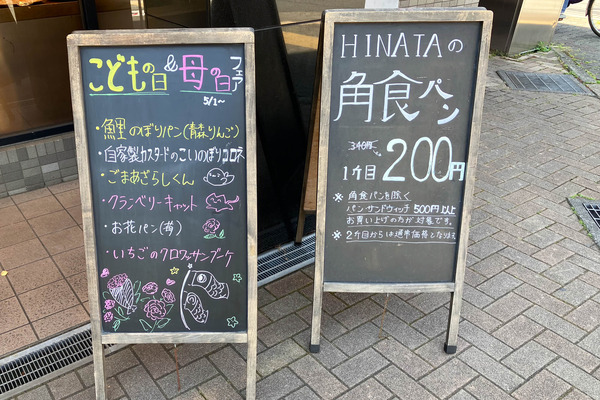 こどもの日&母の日フェア
5/1~
・鯉のぼりパン(青森りんご)
・自家製カスタードのこいのぼりコロネ
・ごまあざらしくん
・クランベリーキャット
・お花パン(苺)
・いちごのクロワッサンブーケ
HINATAの
角食パン
340円
1ヶ目 200円
※角食パンを除く
パン・サンドウィッチ 500円以上
お買い上げの方が対象です。
※2ヶ目からは通常価格となります。